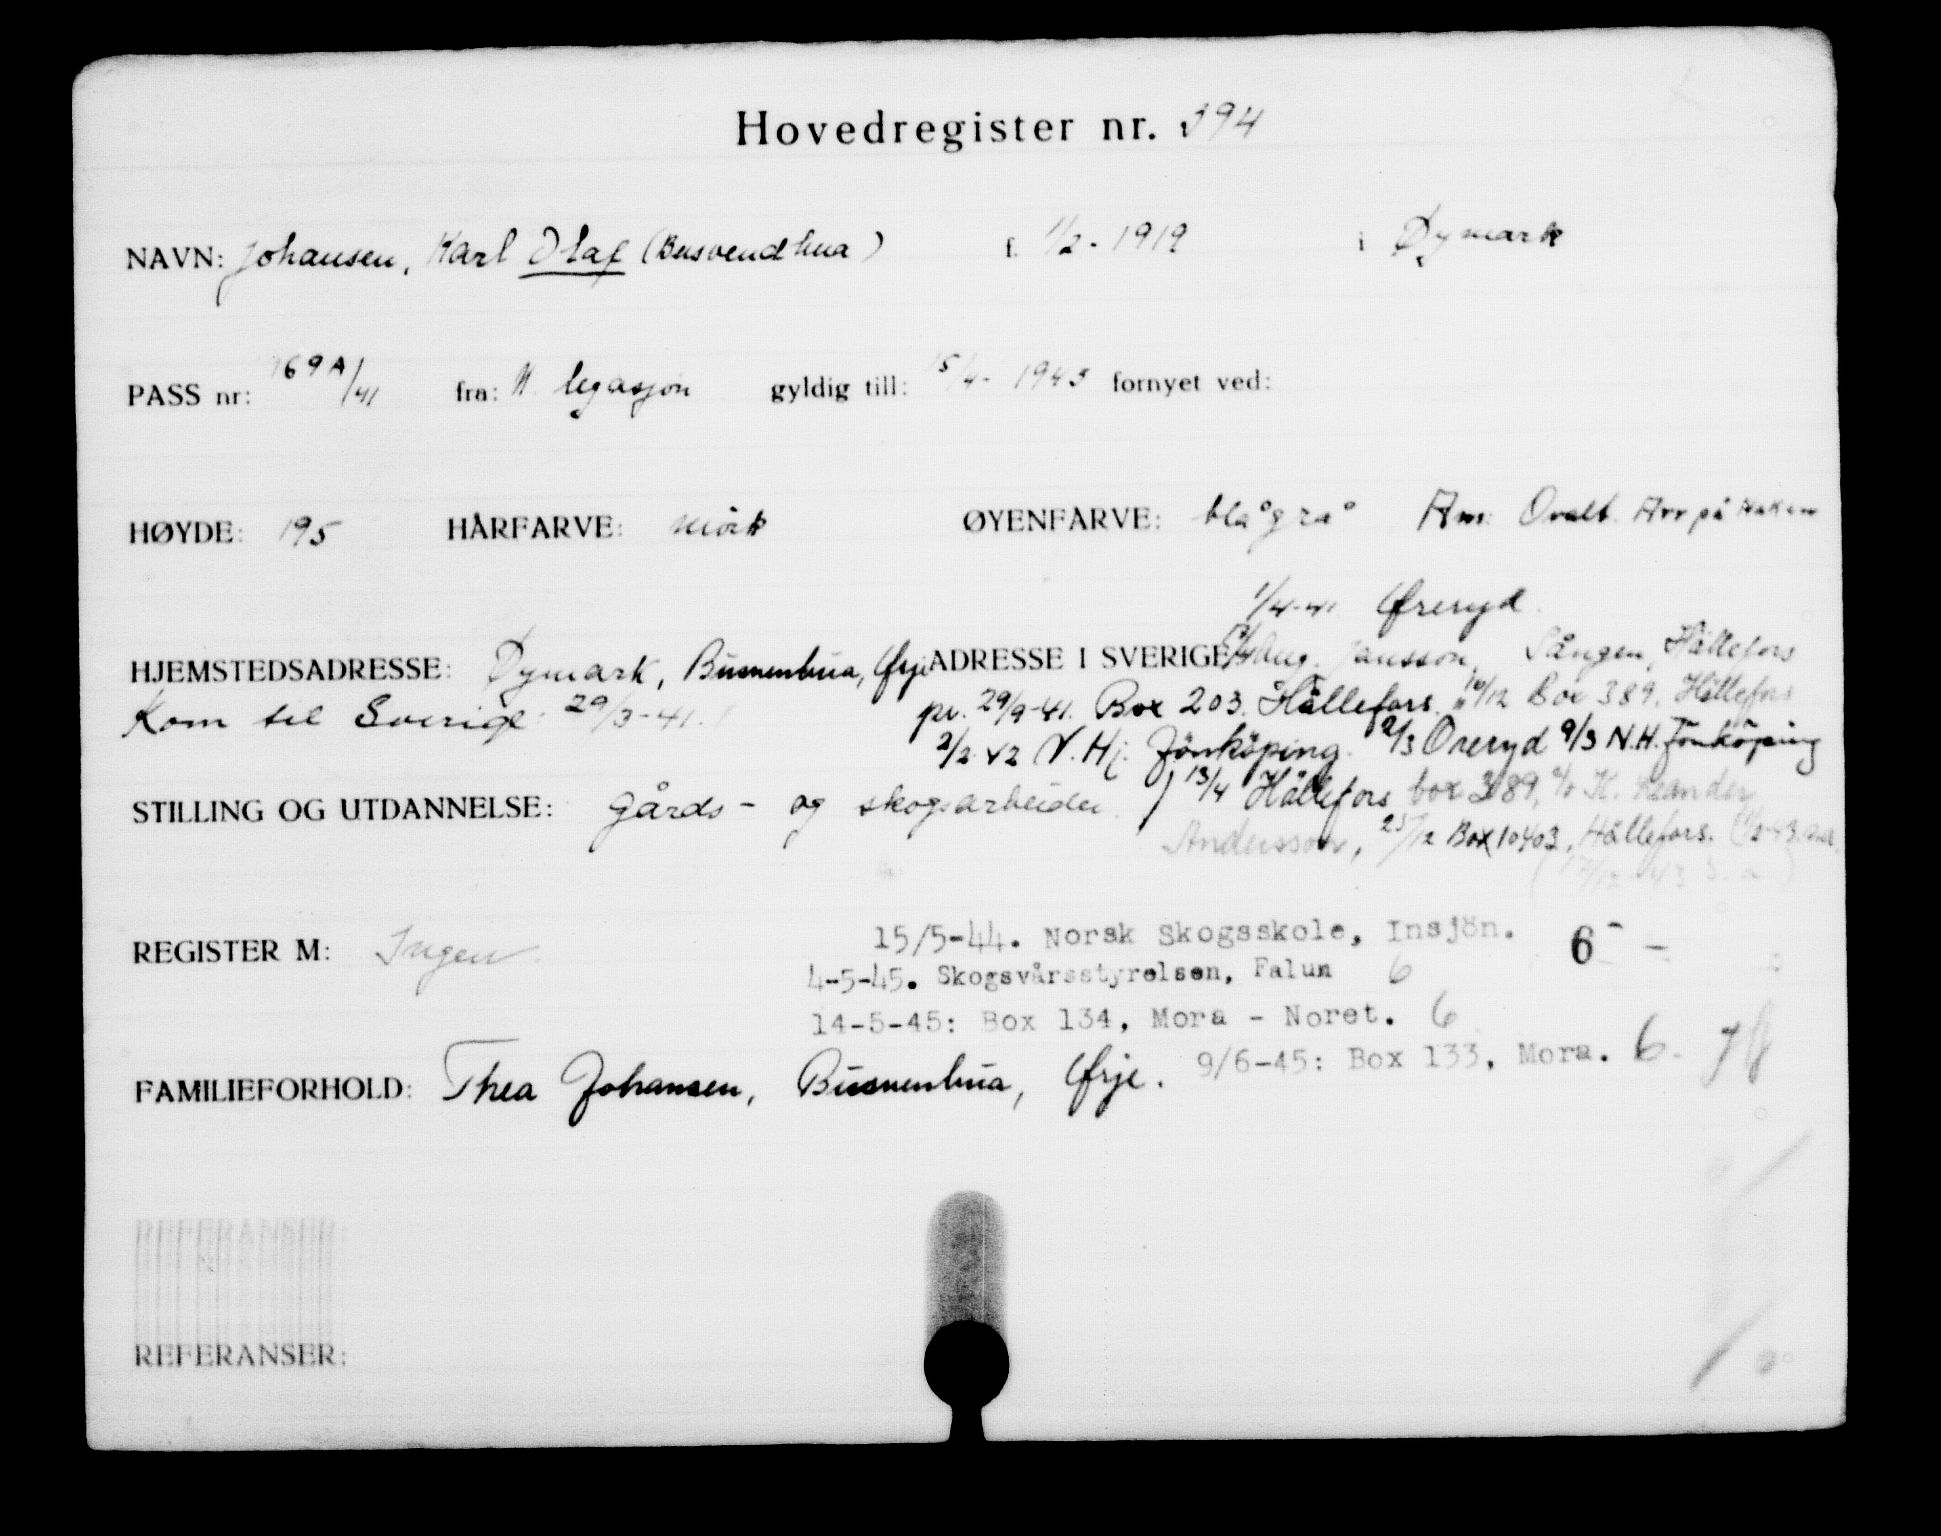 Hovedregister nr. 394
NAVN: Johansen, Karl Olaf (Busvendhua) f. 1/2 - 1919 i Øymark
PASS nr: 169A/41 fra: N. legasjon gyldig till: 15/4 - 1943 fornyet ved:
HØYDE: 195 HÅRFARVE: mörk ØYENFARVE: blågrå Am: Ovalt. Arr på Haken
1/4-41 Øreryd.
HJEMSTEDSADRESSE: Øymark, Busvenhua, Ørje ADRESSE I SVERIGE: Aug. Jansson, Sången, Hällefors
Kom til Sverige: 29/3-41. pr. 29/9-41. Box 203. Hällefors. 16/12 Box 389. Hällefors
2/2 42 N.Hj. Jönköping. 2/3 Öreryd 9/3 N.H. Jönköping
STILLING OG UTDANNELSE: Gårds- og skogsarbeider. 13/4 Hällefors box 389, c/o K. Leander
Andersson, 25/12 Box 10403, Hällefors.
REGISTER M: Ingen. 15/5-44. Norsk Skogsskole, Insjön. 6 -
4-5-45. Skogsvårsstyrelsen, Falun 6
14-5-45: Box 134, Mora - Noret. 6
9/6-45: Box 133, Mora. 6.
FAMILIEFORHOLD: Thea Johansen, Busvenhua, Ørje.
REFERANSER: